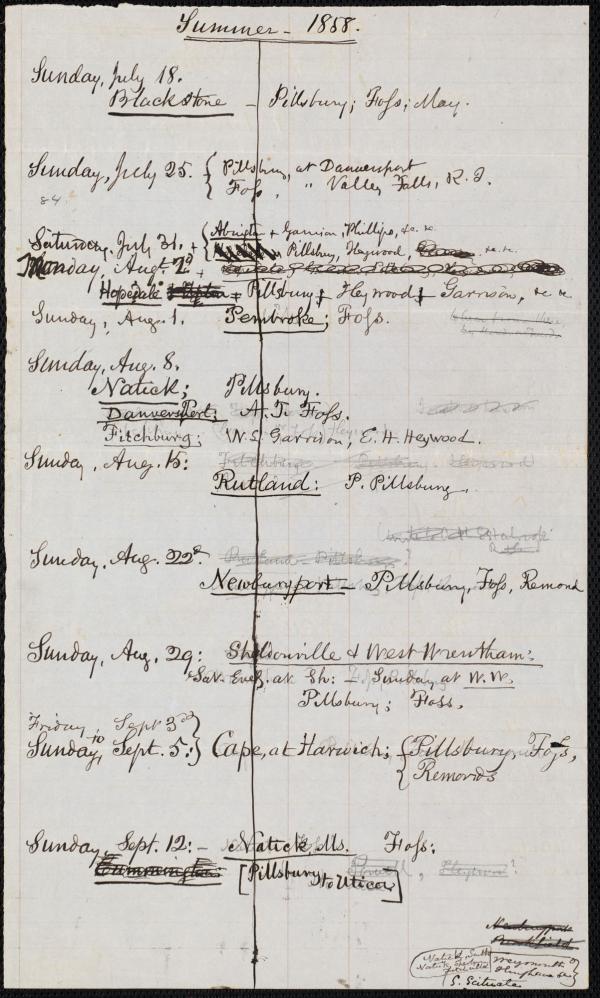 Summer - 1858.
Sunday, July 18.
Blackstone - Pillsbury; Foss; May.
Sunday, July 25. { Pillsbury, at Danversport
Foss, " Valley Falls, R. I.
84.
Saturday, July 31. + { Abington + Garrison, Phillips, &c. &c.
Pillsbury, Heywood, &c. &c.
Monday, Aug. 2d +
Hopedale + Pillsbury + Heywood + Garrison, &c &c
Sunday, Aug. 1. Pembroke; Foss.
Sunday, Aug. 8.
Natick; Pillsbury.
Danversport; A. T. Foss.
Fitchburg; W. L. Garrison; E. H. Heywood.
Sunday, Aug. 15: Fitchburg Pillsbury. Heywood
Rutland: P. Pillsbury.
Sunday, Aug. 22d Rutland - Pillsbury?
Newburyport - Pillsbury, Foss, Remond
Sunday, Aug. 29: Sheldonville & West Wrentham:
Sat. Eveg. at Sh: - Sunday at W. W.
Pillsbury; Foss.
Friday, Sept 3d }
to
Sunday, Sept. 5: } Cape, at Harwich; { Pillsbury, Foss,
Remonds
Sunday, Sept. 12: - Natick, Ms. Foss:
Cummington: [Pillsbury to Utica] , Heywood?
Newburyport
Weymouth
Natick
S. Scituate